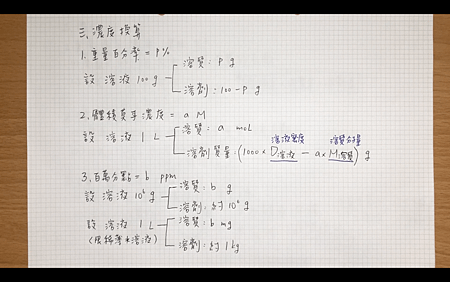 三、濃度換算
1. 重量百分率 = P%
設 溶液 100 g
溶質 : P g
溶劑 : 100 - P g
2. 體積莫耳濃度 = a M
設 溶液 1 L
溶質 : a mol
溶液密度 溶質分子量
溶劑質量 : (1000 × D溶液 - a × M溶質) g
3. 百萬分點 = b ppm
設 溶液 10⁶ g
溶質 : b g
溶劑 : 約 10⁶ g
設 溶液 1 L
(限稀薄水溶液)
溶質 : b mg
溶劑 : 約 1 kg